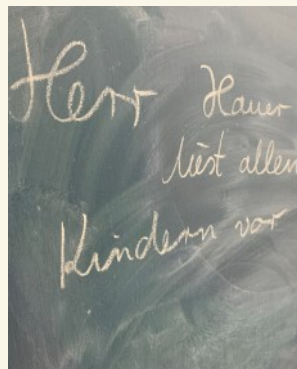 Herr Hauer
liest allen
Kindern vor